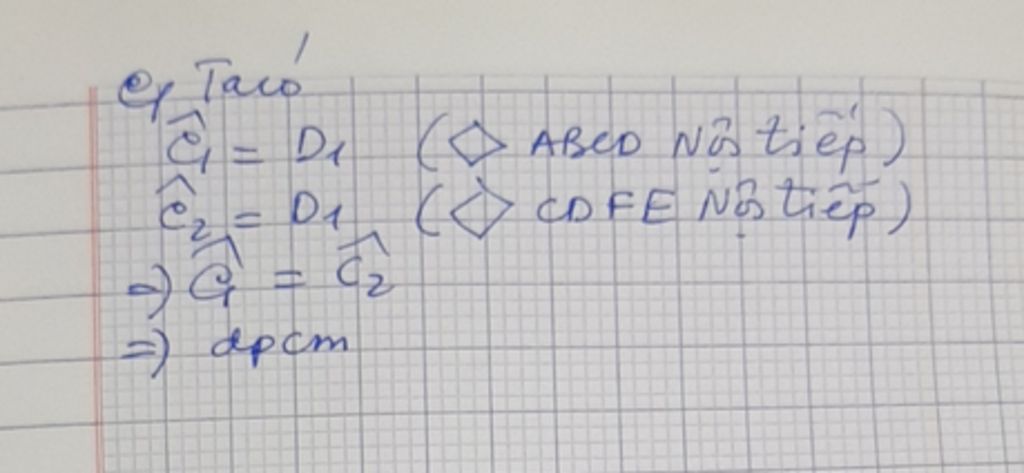 c, Ta có
Ĉ₁ = D₁ (◇ ABCD Nội tiếp)
Ĉ₂ = D₁ (◇ CDFE Nội tiếp)
=> Ĉ₁ = Ĉ₂
=> đpcm